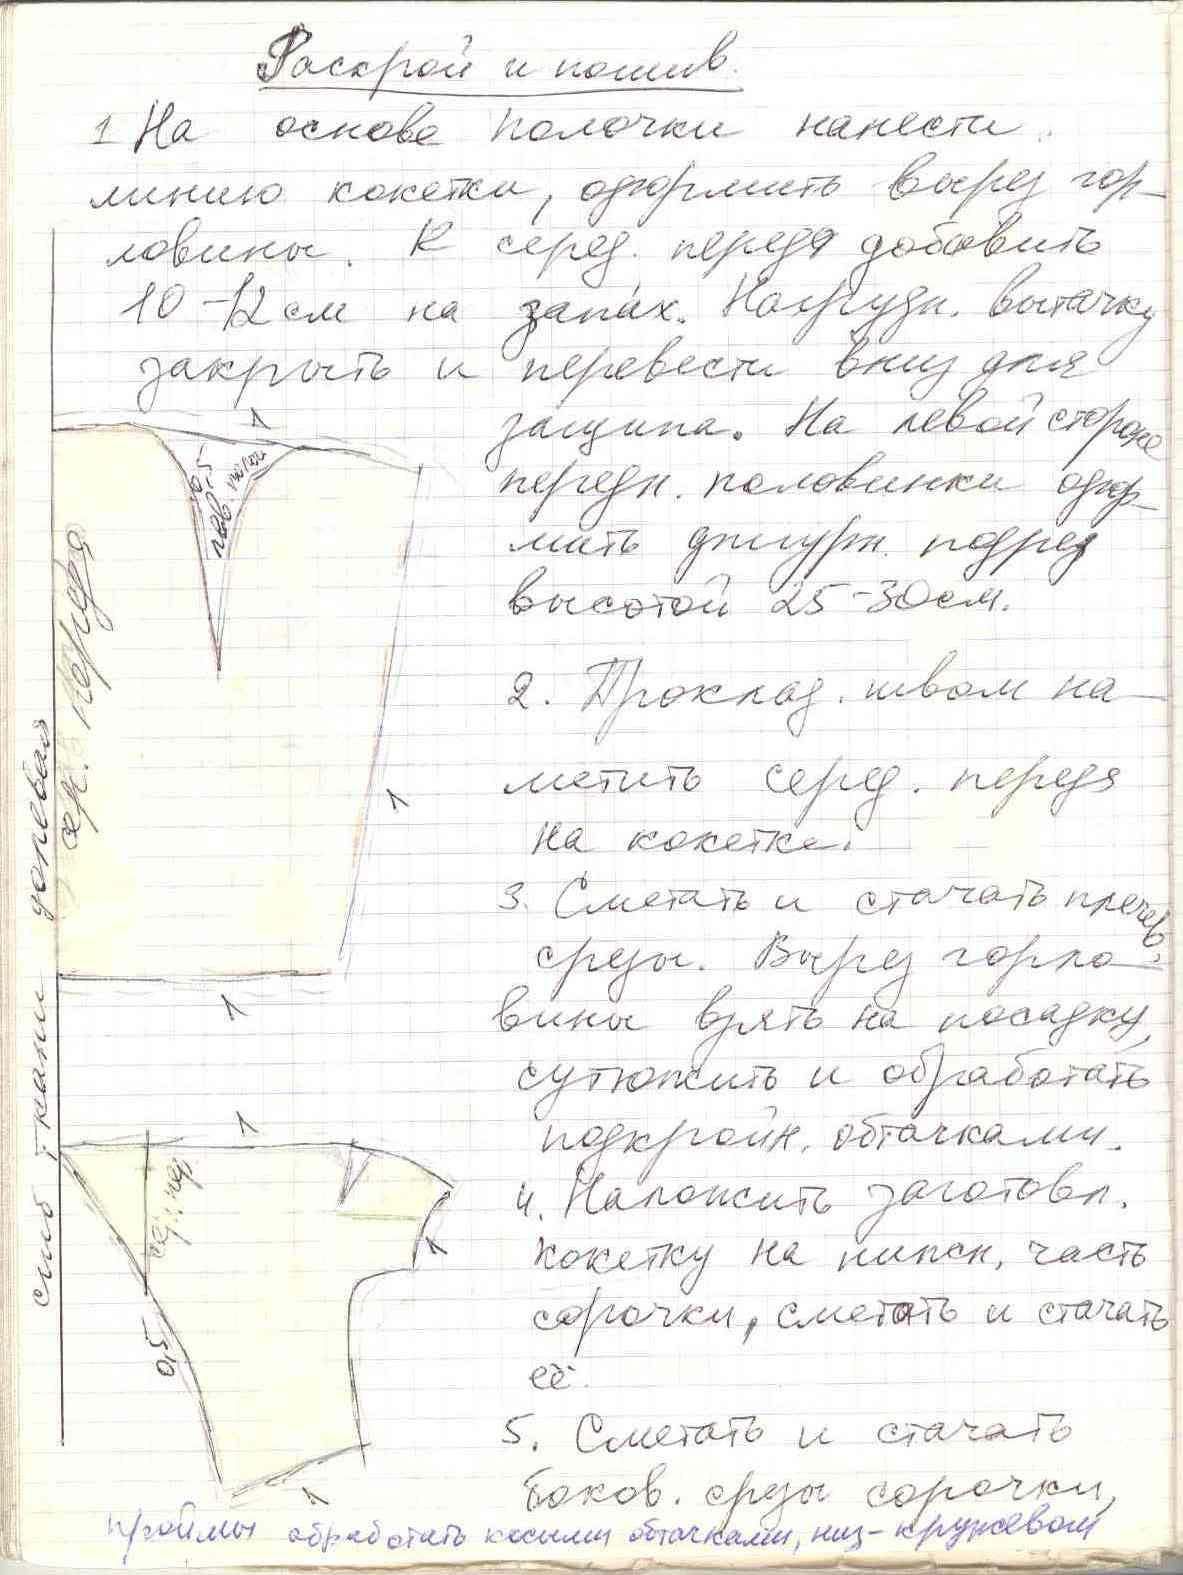 Раскрой и пошив.
1 На основе полочки нанести
линию кокетки, оформить вырез гор-
ловины. К серед. переда добавить
10-12 см на запах. Нагрудн. вытачку
закрыть и перевести вниз для
защипа. На левой стороне
передн. половинки офор-
мить фигурн. подрез
высотой 25-30 см.
2. Проклад. швом на-
метить серед. переда
на кокетке.
3. Сметать и стачать плечев.
срезы. Вырез горло-
вины взять на посадку,
сутюжить и обработать
подкройн. обтачками.
4. Наложить заготовл.
кокетку на нижн. часть
сорочки, сметать и стачать
её.
5. Сметать и стачать
боков. срезы сорочки,
проймы обработать косыми обтачками, низ-кружевом
сгиб ткани долевая
сер. переда
1
0,5
1
1
1
сер. пер.
1
0,5
1